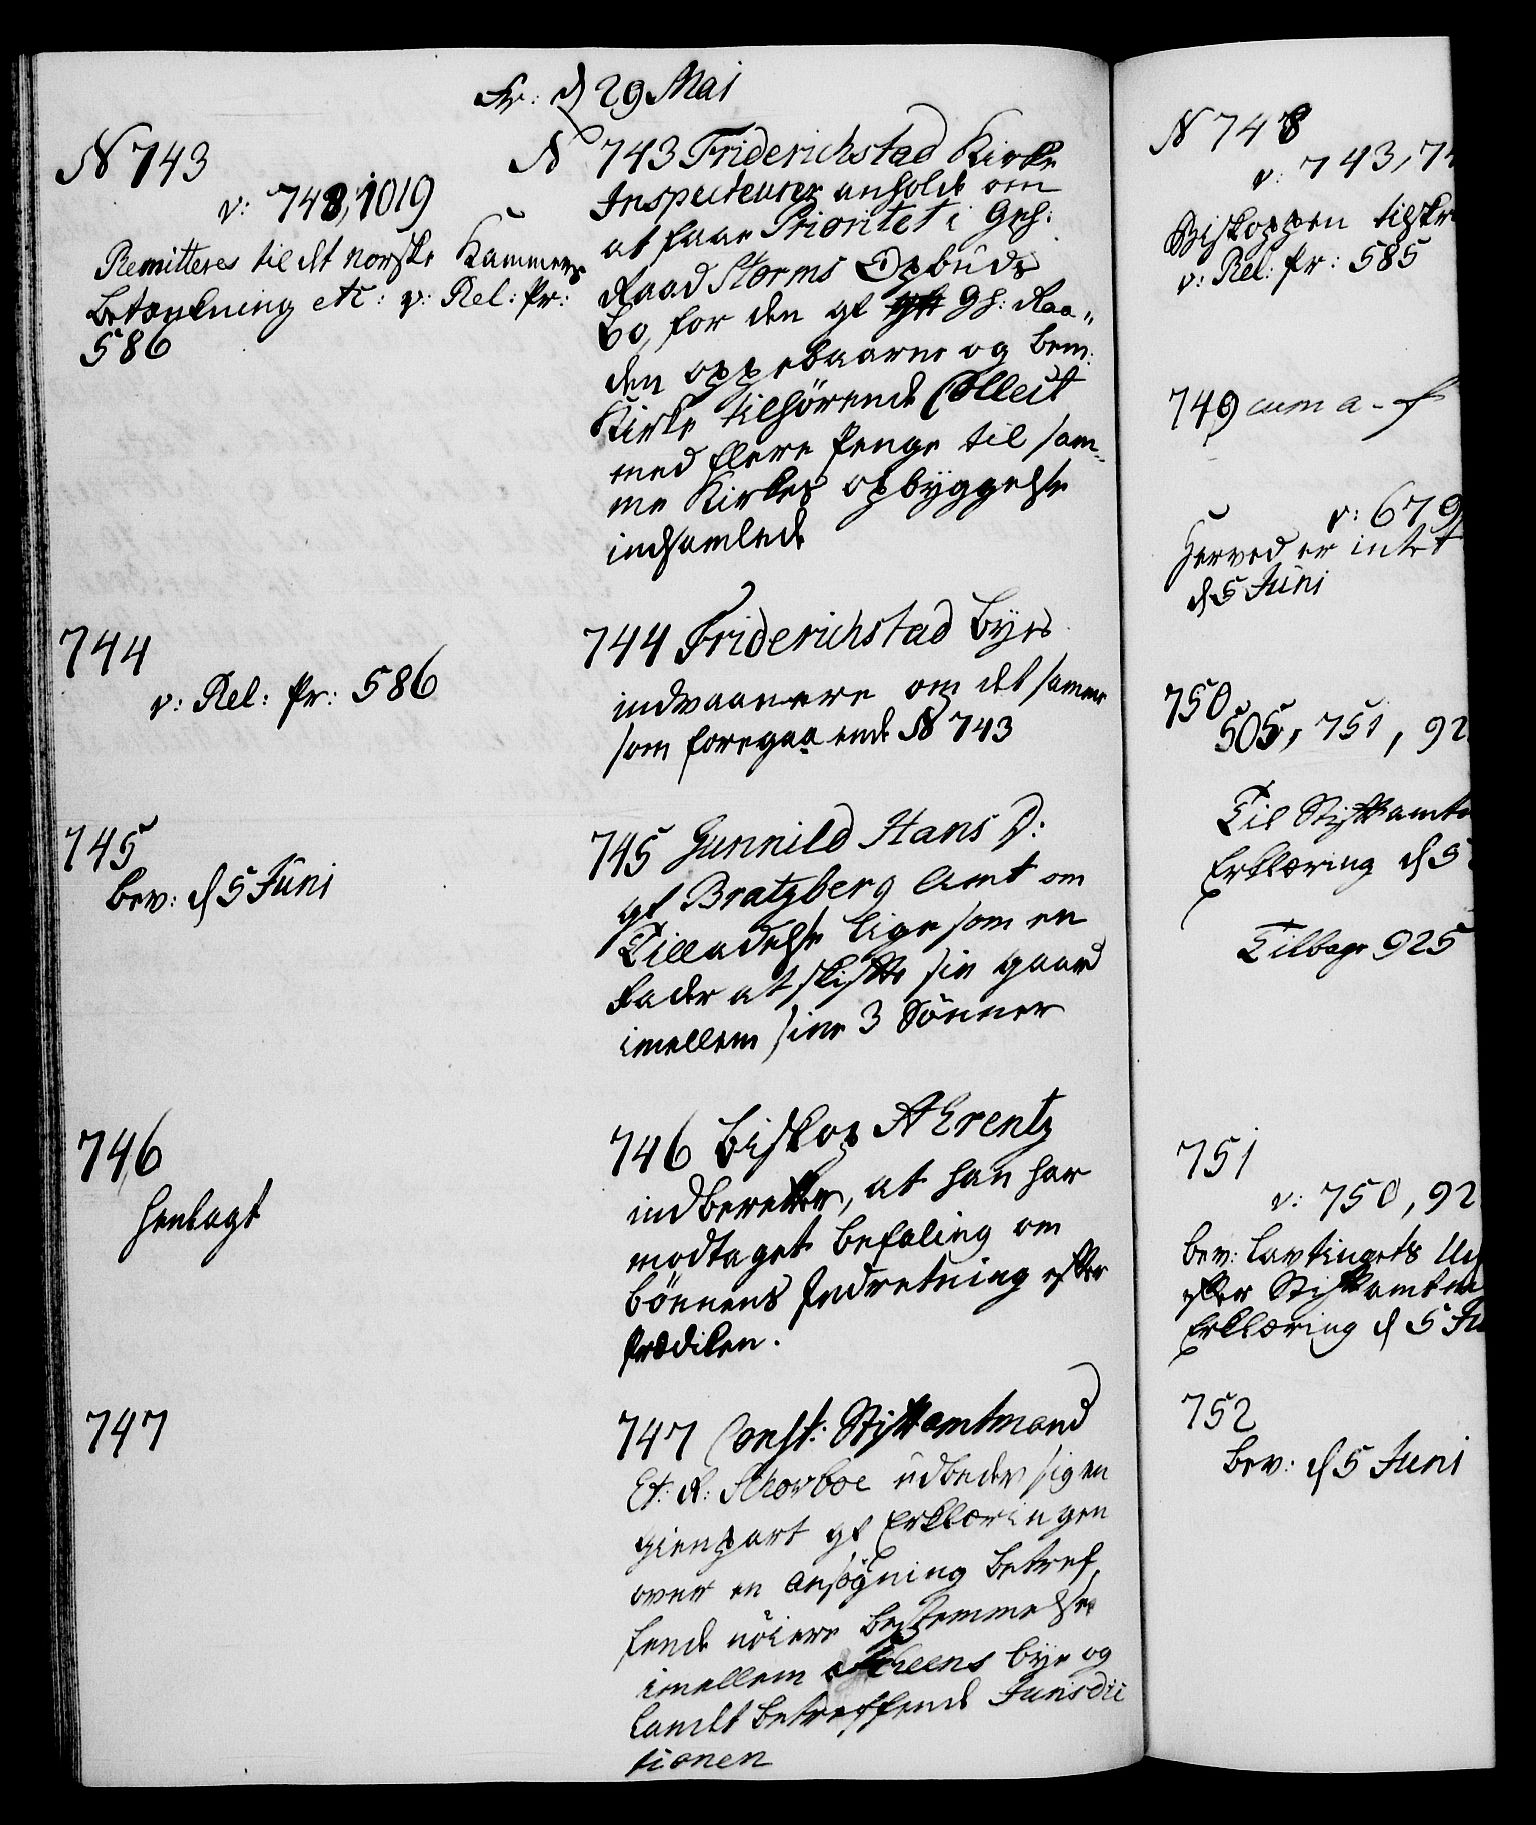 Fr: d 29 Mai
N 743
v: 748, 1019
Remitteres til dt norske Kammers
Betænkning etc: v: Rel: Pr:
586
N 743 Friderichstad Kirke
Inspecteurer anholde om
at faae Prioritet i Geh:
Raad Storms Opbuds
Bo, for den af Gh: Raa-
den oppebaarne og bem:
Kirke tilhørende Collect
med flere Penge til sam-
me Kirkes opbyggelse
indsamlede
744
v: Rel: Pr: 586
744 Friderichstad Byes
indvaanere om det samme
som foregaaende N 743
745
bev: d 5 Juni
745 Gunnild Hans D:
af Bratzberg Amt om
Tilladelse lige som en
Fader at skifte sin gaard
imellem sine 3 Sønner
746
henlagt
746 Biskop Arentz
indberetter, at han har
modtaget Befaling om
Bønnens Indretning efter
Prædiken.
747
747 Const: Stiftamtmand
Et: R: Schovboe udbeder sig en
gienpart af Erklæringen
over en ansøgning betref-
fende nöiere Bestemmelse
imellem Scheens bye og
landet betreffende Jurisdic
tionen
N 748
v: 743, 74
Biskoppen tilskr
v: Rel: Pr: 585
749 cum a - f
v: 679
Herved er intet
d 5 Juni
750
505, 751, 92
Til Stiftamt
Erklæring d 5
Tilbage 925
751
v: 750, 92
bev: Lavtingets
efter Stiftamtm
Erklæring d 5 Ju
752
bev: d 5 Juni